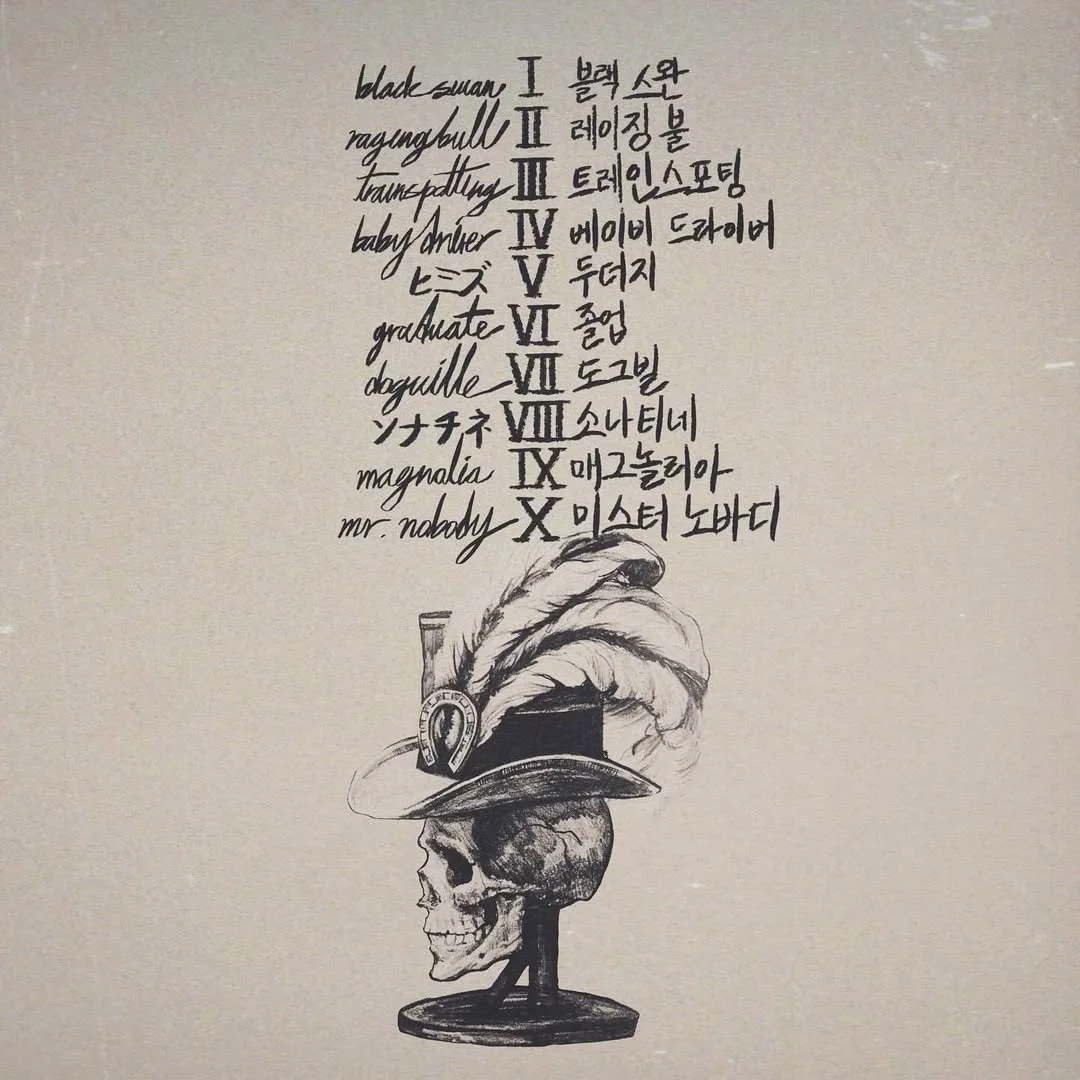 black swan I 블랙 스완
raging bull II 레이징 불
trainspotting III 트레인스포팅
baby driver IV 베이비 드라이버
ヒミズ V 두더지
graduate VI 졸업
dogville VII 도그빌
ソナチネ VIII 소나티네
magnolia IX 매그놀리아
mr. nobody X 미스터 노바디